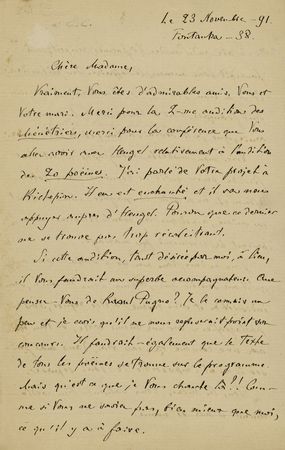 Le 23 Novembre - 91.
Fontanka - 38.
Chère Madame,
Vraiment, Vous êtes d'admirables amis, Vous et
Votre mari. Merci pour la 2-me audition des
Ménétriers, merci pour la conférence que Vous
allez avoir avec Heugel relativement à l'audition
des 20 poèmes. J'ai parlé de Votre projet à
Richepin. Il en est enchanté et il va nous
appuyer auprès d'Heugel. Pourvu que ce dernier
ne se trouve pas trop récalcitrant.
Si cette audition, tant désirée par moi, a lieu,
il Vous faudrait un superbe accompagnateur. Que
pensez-Vous de Raoul Pugno? Je le connais un
peu et je crois qu'il ne nous refuserait point son
concours. Il faudrait également que le Texte
de tous les poèmes se trouve sur le programme.
Mais qu'est ce que je Vous chante là?! Com-
me si Vous ne saviez pas, bien mieux que moi,
ce qu'il y a à faire.